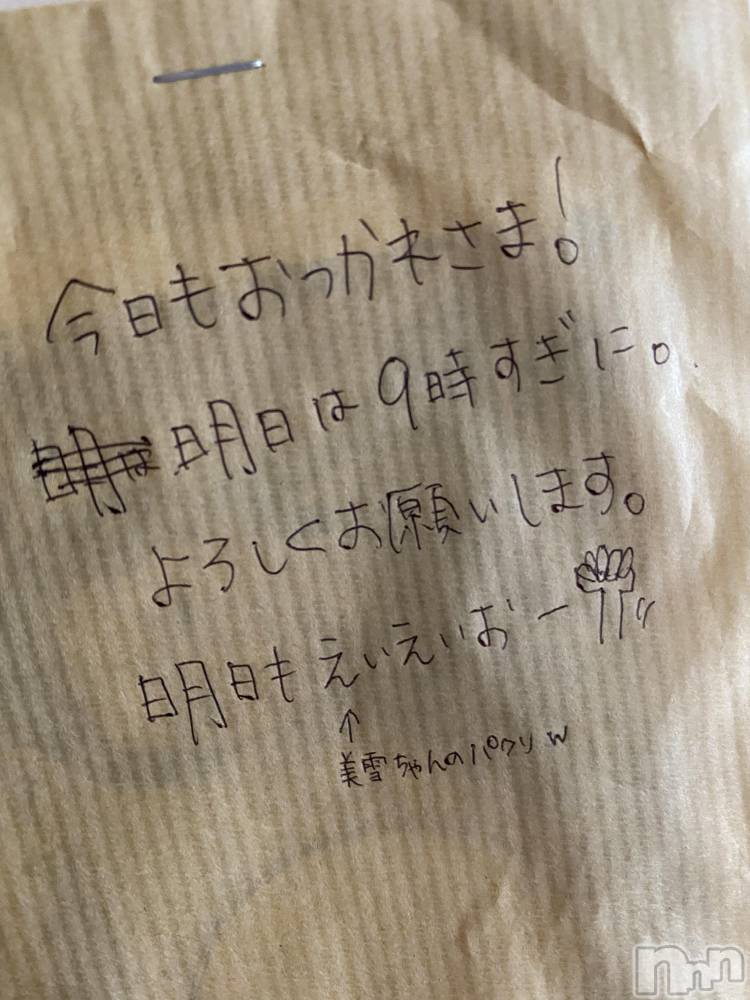 今日もおっかれさま!
明日は9時すぎに。
よろしくお願いします。
明日もえいえいおー
↑
美雪ちゃんのパクリw
nnn